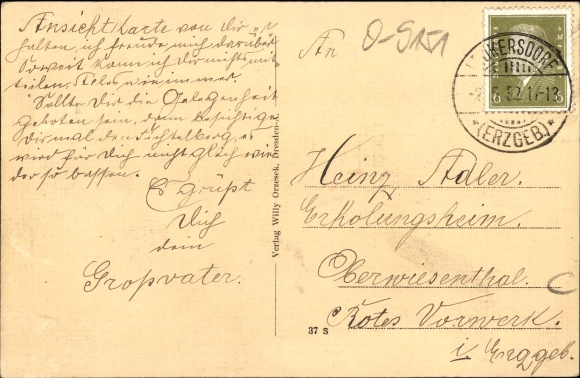 Ansichtkarte von Dir er
halten, ich freude mich darüber
Soweit kann ich Dir nichts mit
teilen, Alles wie immer.
Sollte Dir die Gelegenheit
geboten sein, dann besichtige
Dir mal den Fichtelberg, es
wird für Dich nicht gleich wie
der so passen.
Es grüßt
Dich
dein
Großvater.
Verlag Willy Orzesek, Dresden-A.
37 S
An
O-5151
LEUKERSDORF
5.32.17-18
*(ERZGEB.)*
6 6
Heinz Adler.
Erholungsheim.
Oberwiesenthal.
Rotes Vorwerk.
i. Erzgeb.